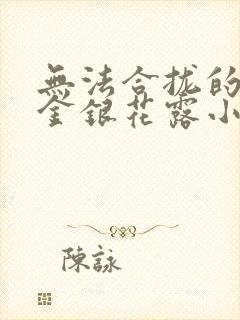 無法合拢的
金銀花露小
陳詠